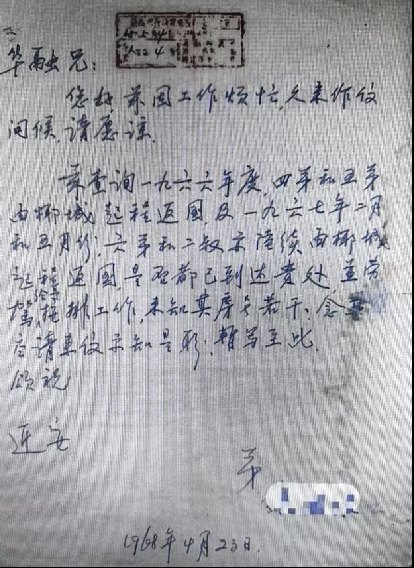 华融兄：
您好前因工作烦忙，久未作仪
问候，请愿谅。
兹查询一九六六年度，四弟和五弟
由椰城起程返国，及一九六七年二月
和五月份，六弟和二叔亦陆续由椰城
起程返国，是否都已到达贵处
排工作，未知其序号若干，念
请来仪示知是盼，暂写至此，
顺祝
近安
弟
1968年4月23日